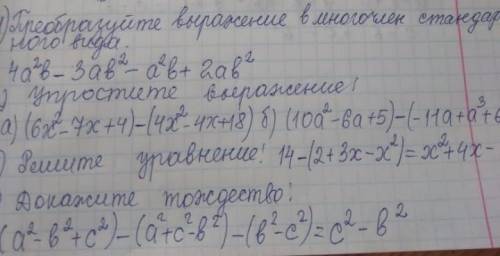 1) Преобразуйте выражение в многочлен стандар
ного вида.
4a²b - 3ab² - a²b + 2ab²
) Упростите выражение!
а) (6x² - 7x + 4) - (4x² - 4x + 18) б) (10a² - 6a + 5) - (-11a + a³ + 6
) Решите уравнение! 14 - (2 + 3x - x²) = x² + 4x -
) Докажите тождество!
(a² - b² + c²) - (a² + c² - b²) - (b² - c²) = c² - b²